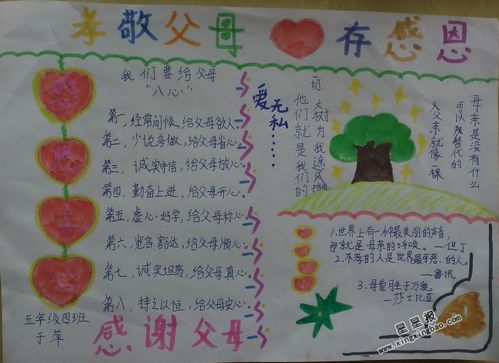 孝敬父母 存感恩
感
恩
我们要给父母
"八心"
第一,经常问候,给父母欢心。
第二,少说多做,给父母省心。
第三,诚实守信,给父母放心。
第四,勤奋上进,给父母开心。
第五,虚心好学,给父母称心。
第六,宽容豁达,给父母顺心。
第七,诚实坦荡,给父母真心。
第八,持之以恒,给父母安心。
五年级四班
于萍
感谢父母
爱无私……
母亲是没有什么
可以代替的
父亲就像一棵
大树为我遮风挡雨
他们就是我们的
1.世界上有一种最美丽的声音,
那就是母亲的呼唤。—但丁
2.不孝的人是世界最可恶的人。
—鲁迅
3.母爱胜于万爱。
—莎士比亚
星星报
www.xingxingbao.com